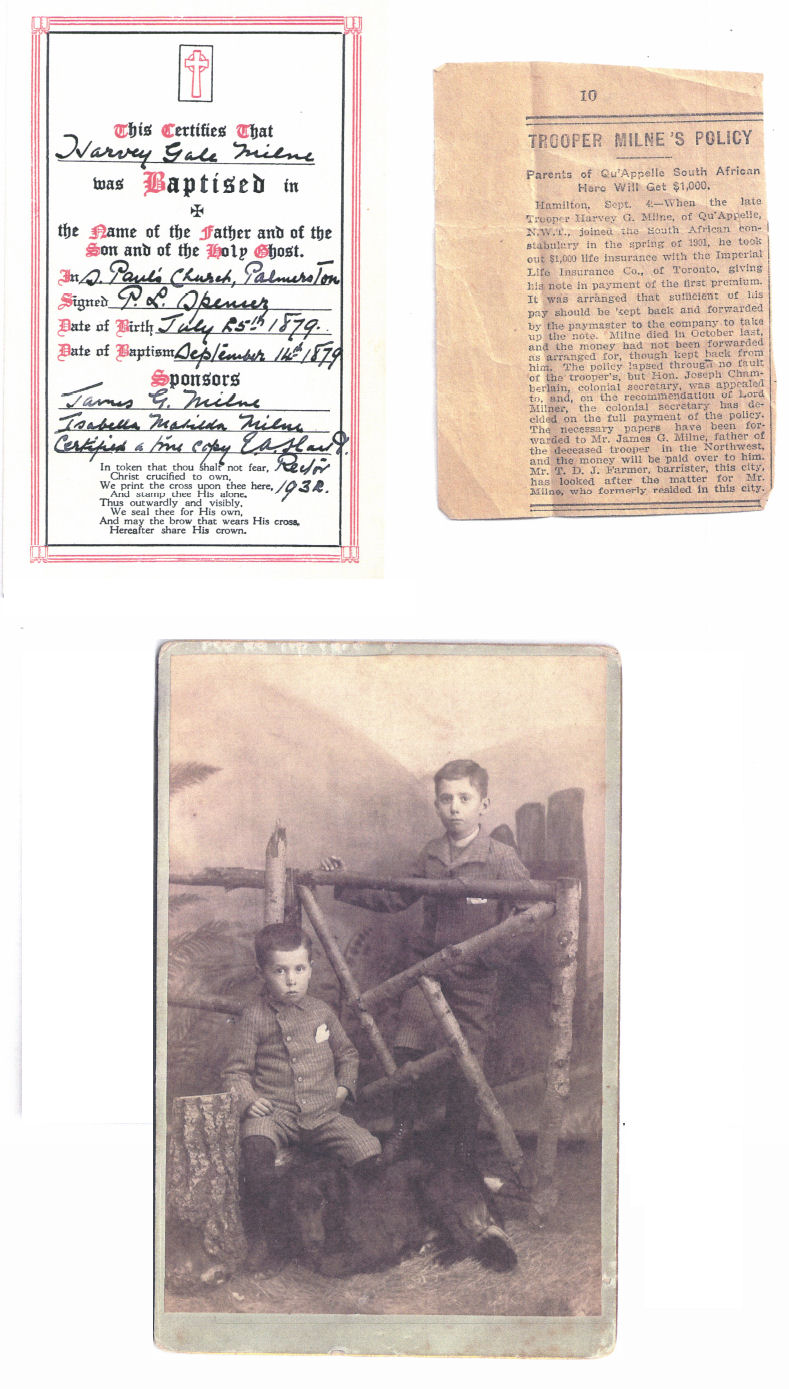 This Certifies That
Harvey Gale Milne
was Baptised in
the Name of the Father and of the
Son and of the Holy Ghost.
In S. Paul's Church, Palmerston
Signed P. L. Spencer
Date of Birth July 25th 1879.
Date of Baptism September 14th 1879
Sponsors
James G. Milne
Isabella Matilda Milne
Certified a true copy
In token that thou shalt not fear, Rector
Christ crucified to own,
We print the cross upon thee here, 1932.
And stamp thee His alone.
Thus outwardly and visibly,
We seal thee for His own,
And may the brow that wears His cross,
Hereafter share His crown.
10
TROOPER MILNE'S POLICY
Parents of Qu'Appelle South African
Hero Will Get $1,000.
Hamilton, Sept. 4.—When the late
Trooper Harvey G. Milne, of Qu'Appelle,
N.W.T., joined the South African con-
stabulary in the spring of 1901, he took
out $1,000 life insurance with the Imperial
Life Insurance Co., of Toronto, giving
his note in payment of the first premium.
It was arranged that sufficient of his
pay should be kept back and forwarded
by the paymaster to the company to take
up the note. Milne died in October last,
and the money had not been forwarded
as arranged for, though kept back from
him. The policy lapsed through no fault
of the trooper's, but Hon. Joseph Cham-
berlain, colonial secretary, was appealed
to, and, on the recommendation of Lord
Milner, the colonial secretary has de-
cided on the full payment of the policy.
The necessary papers have been for-
warded to Mr. James G. Milne, father of
the deceased trooper in the Northwest,
and the money will be paid over to him.
Mr. T. D. J. Farmer, barrister, this city,
has looked after the matter for Mr.
Milne, who formerly resided in this city.